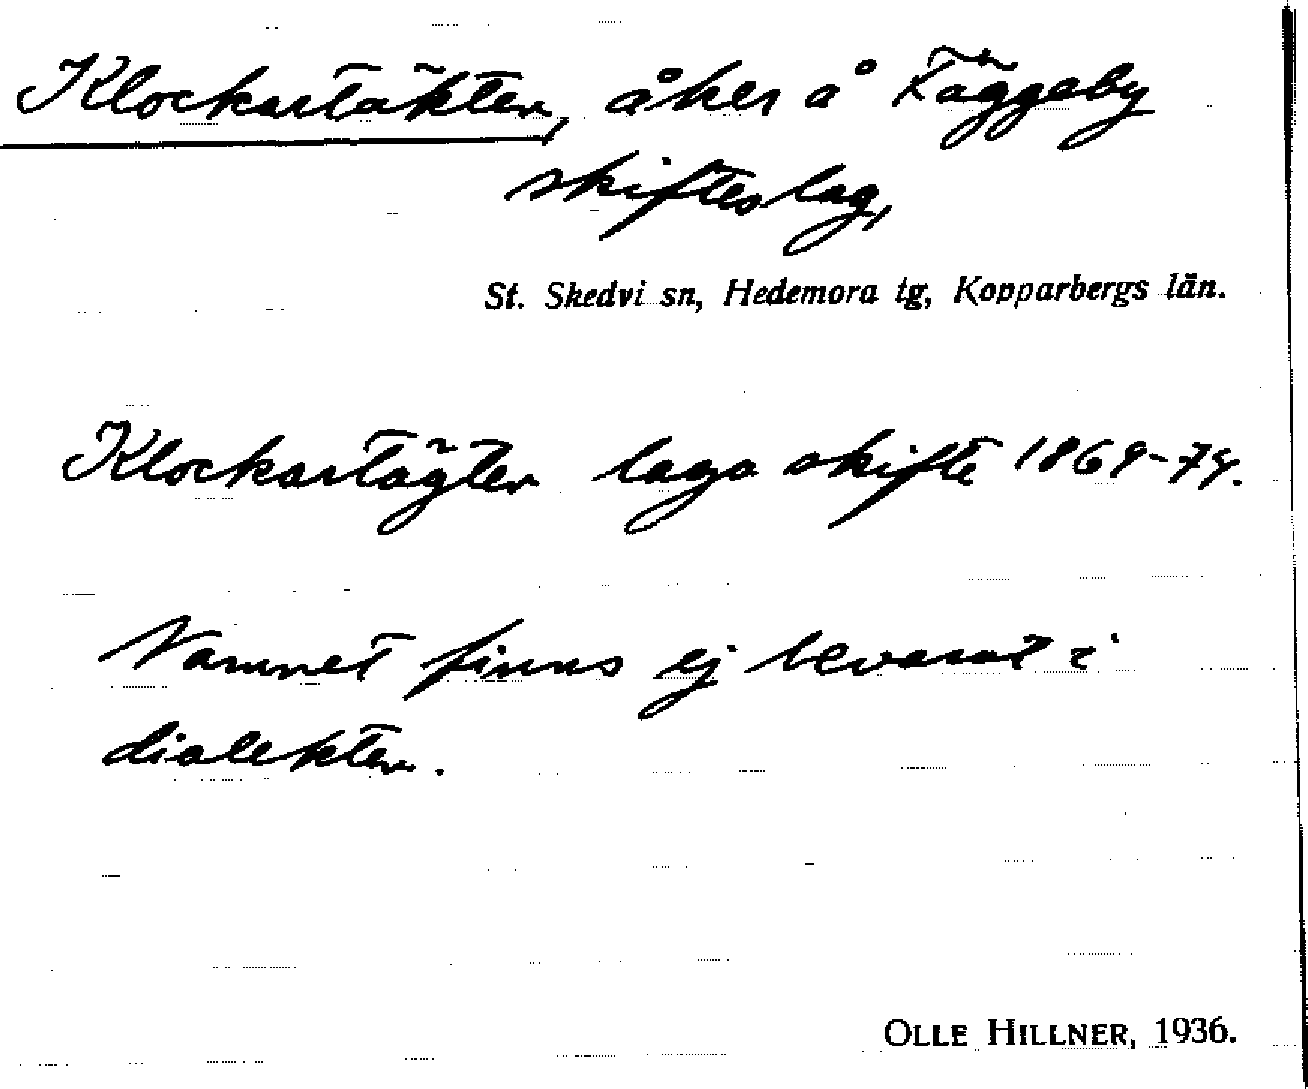 Klockartäkten, åker å Fäggeby
skifteslag,
St. Skedvi sn, Hedemora tg, Kopparbergs län.
Klockartägten laga skifte 1869-74.
Namnet finns ej bevarat i
dialekten.
OLLE HILLNER, 1936.